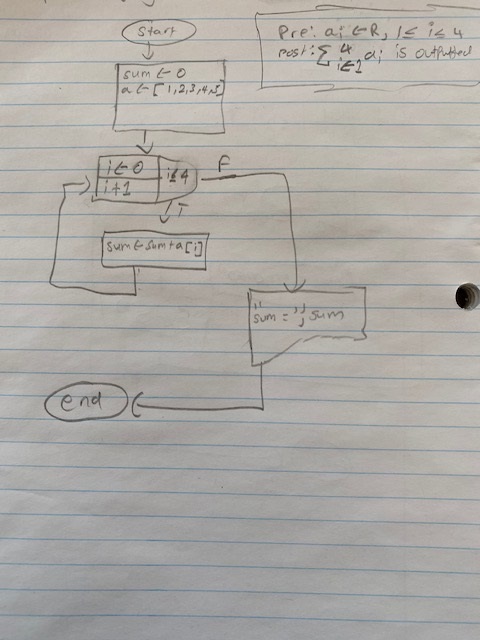 start
Pre: ai ∈ R, 1 ≤ i ≤ 4
post: ∑ 4 i←1 ai is outputted
sum ← 0
a ← [1,2,3,4,5]
i ← 0
i+1
i≤4
F
T
sum ← sum + a[i]
"sum = "; sum
end